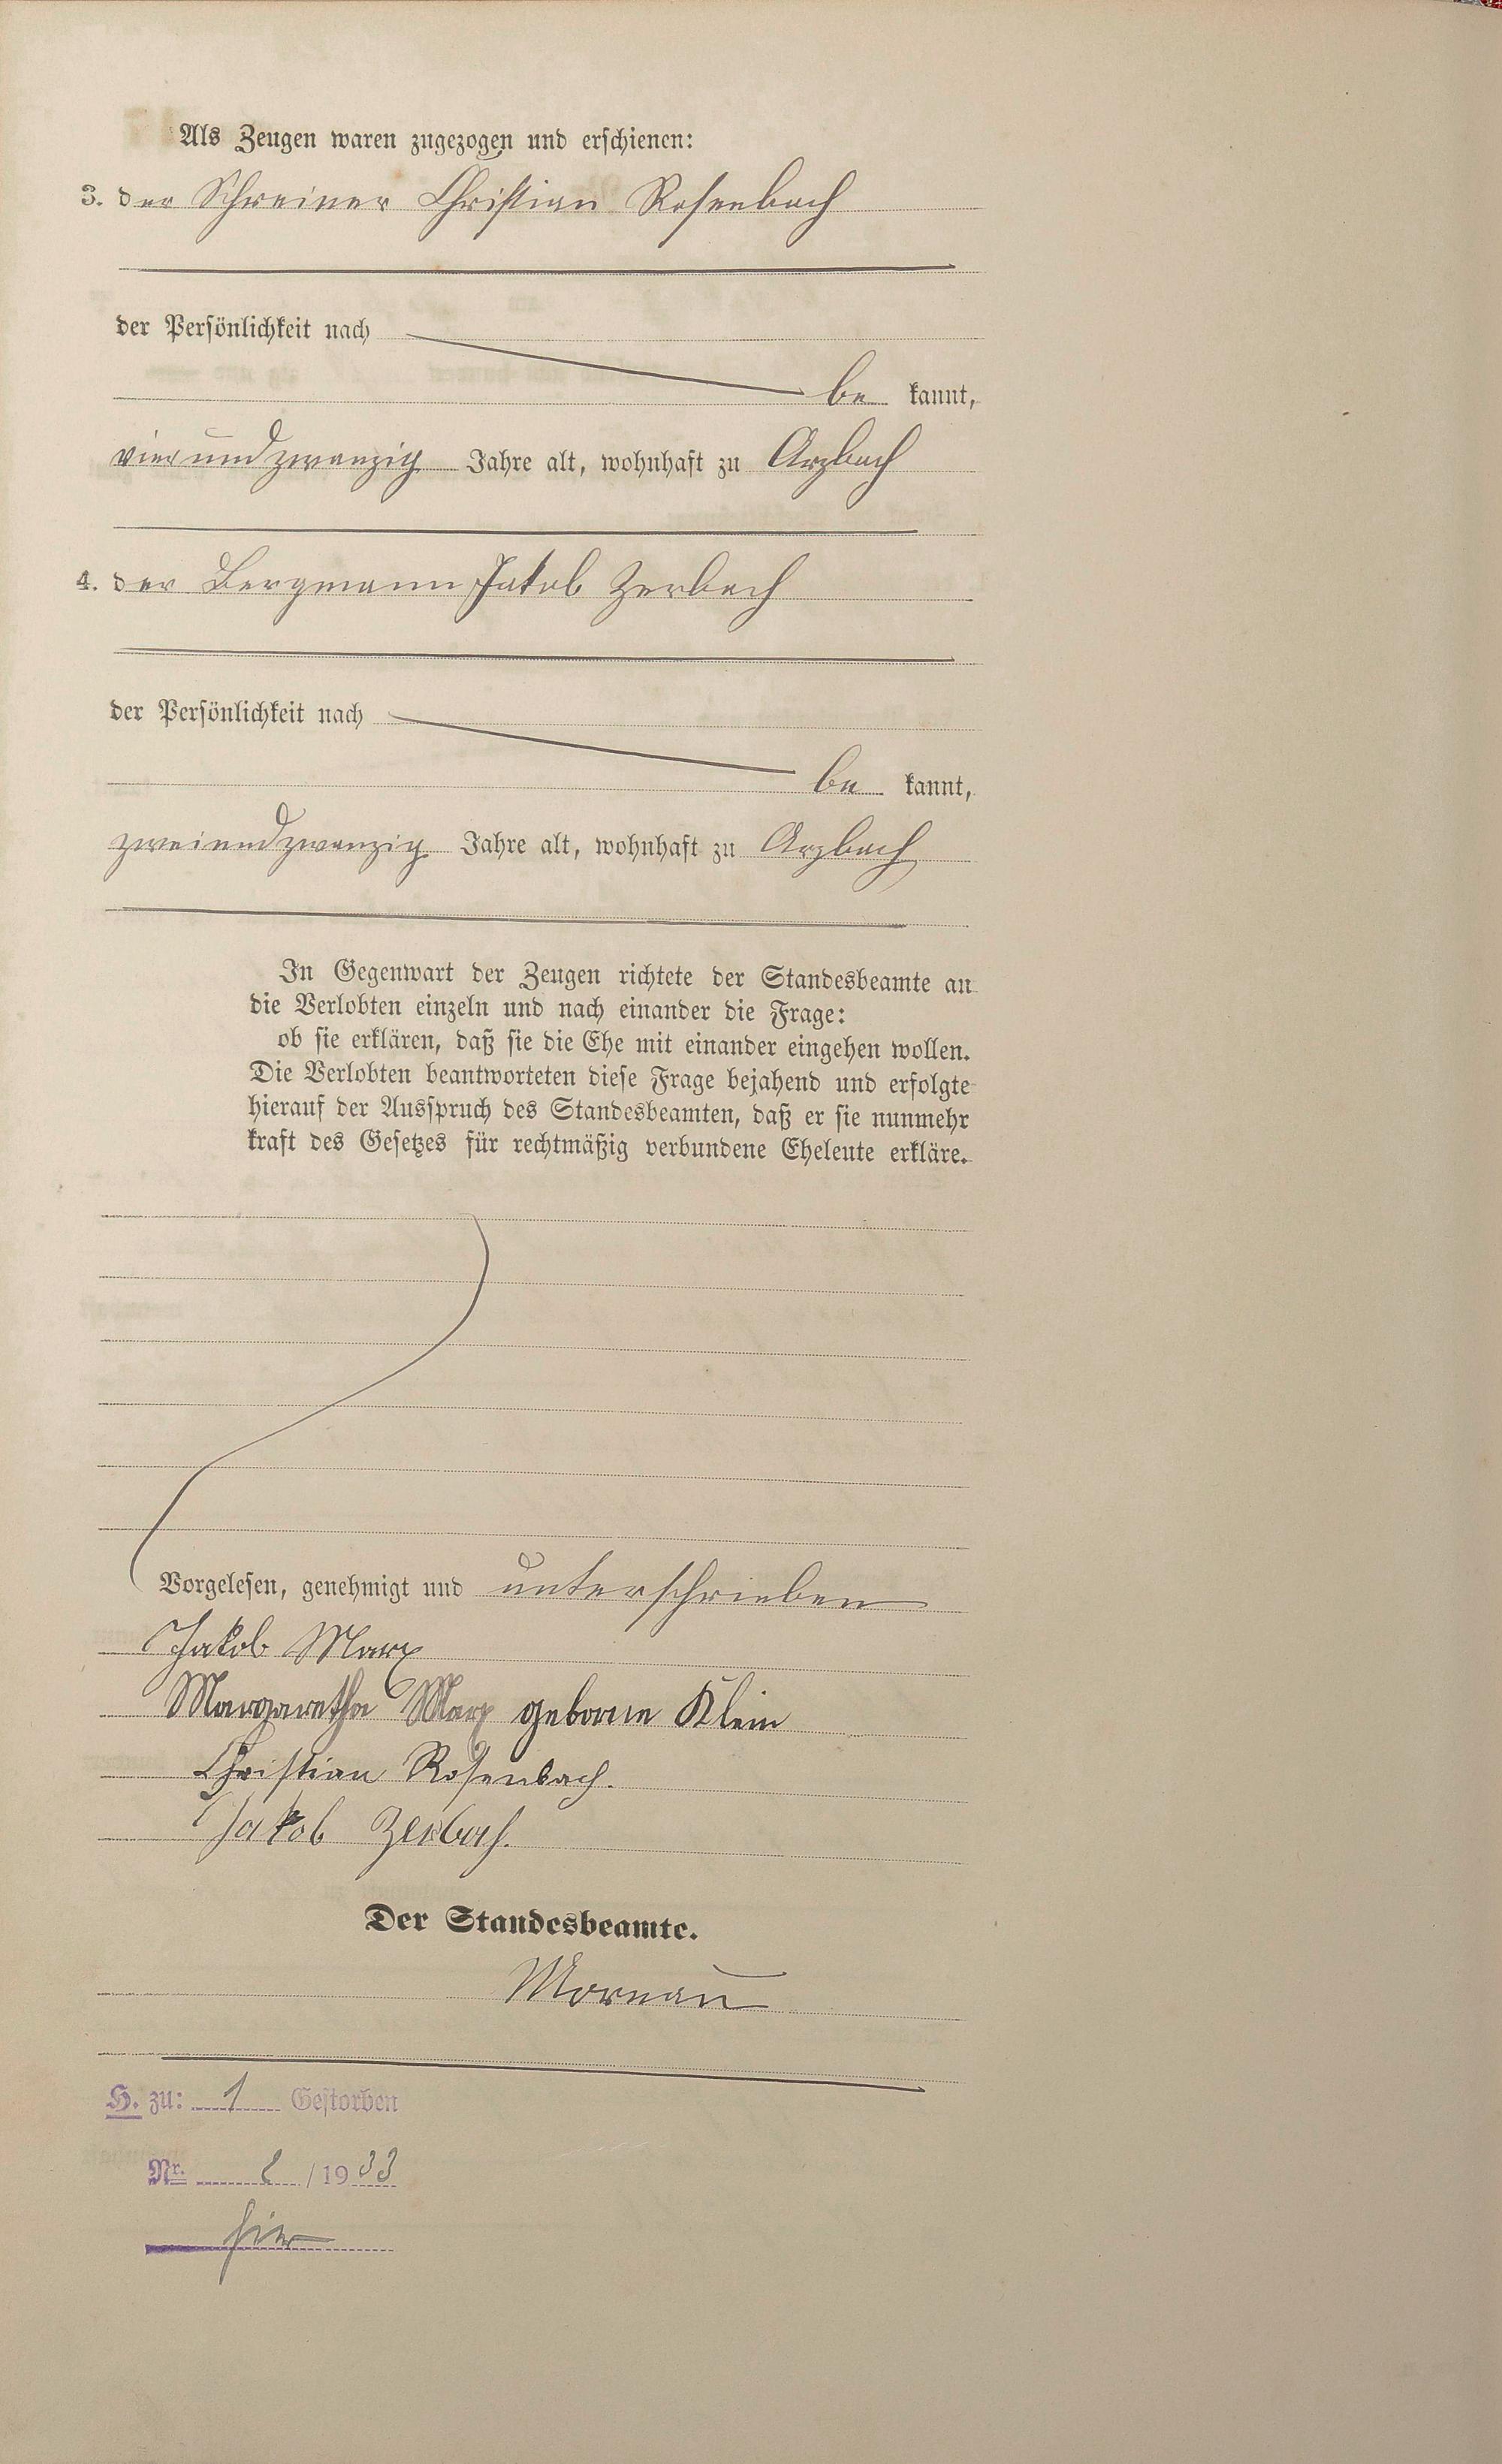 Als Zeugen waren zugezogen und erschienen:
3. der Schreiner Christian Rosenbach
der Persönlichkeit nach
be kannt,
vierundzwanzig Jahre alt, wohnhaft zu Arzbach
4. der Bergmann Jakob Zerbach
der Persönlichkeit nach
be kannt,
zweiundzwanzig Jahre alt, wohnhaft zu Arzbach
In Gegenwart der Zeugen richtete der Standesbeamte an
die Verlobten einzeln und nach einander die Frage:
ob sie erklären, daß sie die Ehe mit einander eingehen wollen.
Die Verlobten beantworteten diese Frage bejahend und erfolgte
hierauf der Ausspruch des Standesbeamten, daß er sie nunmehr
kraft des Gesetzes für rechtmäßig verbundene Eheleute erkläre.
Vorgelesen, genehmigt und unterschrieben
Jakob Marx
Margaretha Marx geborne Klein
Christian Rosenbach.
Jakob Zerbach.
Der Standesbeamte.
Mornau
H. zu: 1 Gestorben
Nr. / 1933
hier